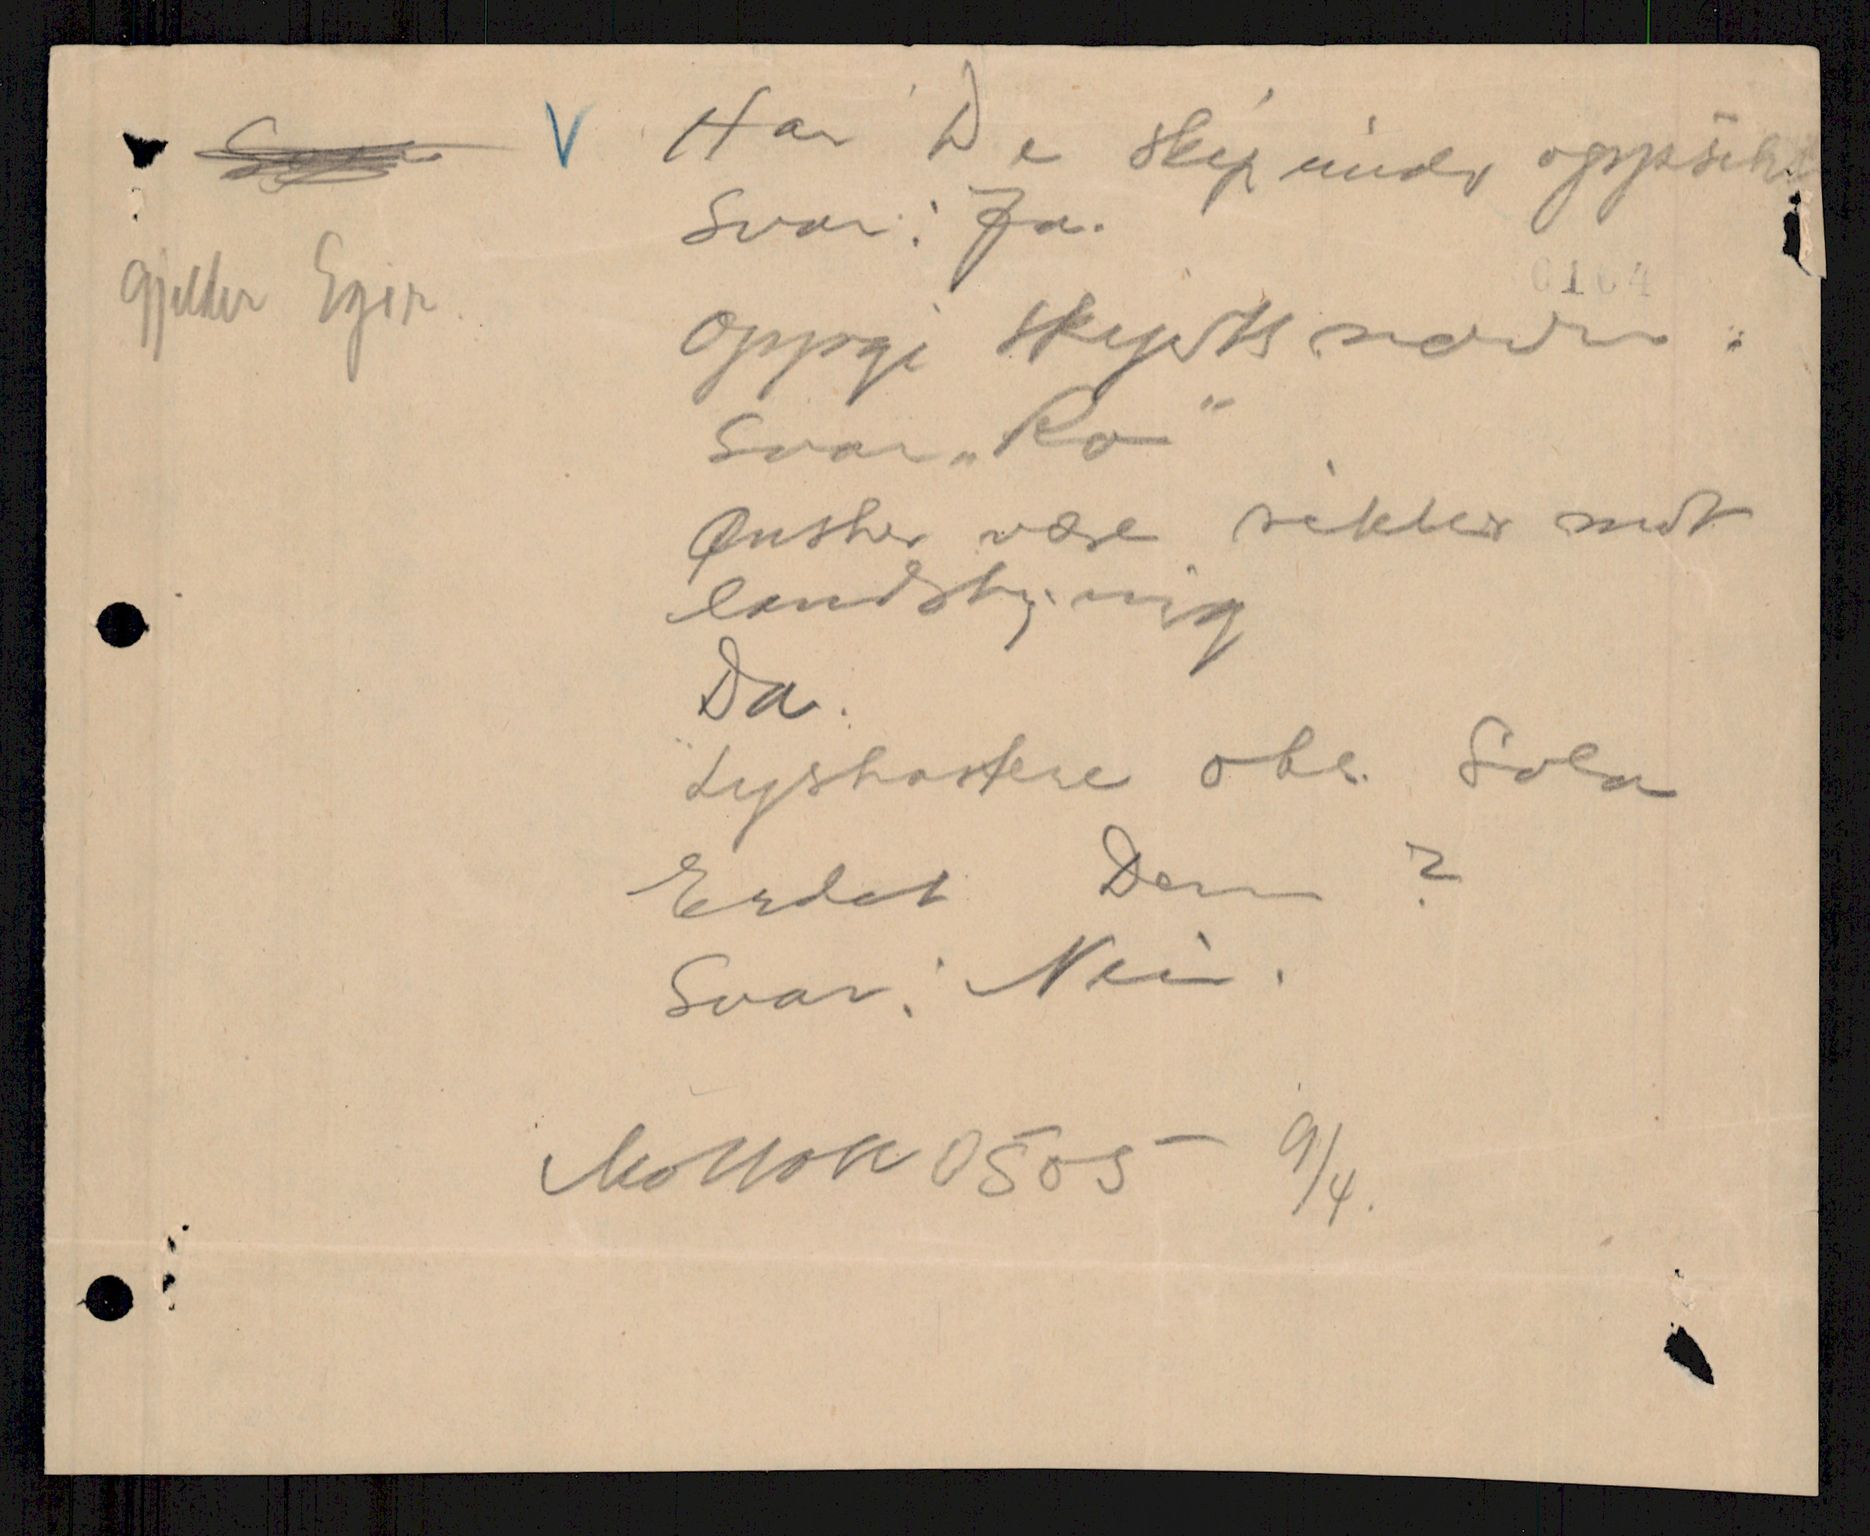 V Har De skip under oppsikt
Svar: Ja.
0164
gjelder Egir.
Oppgi skipets navn:
Svar „Ro"
Ønsker være sikker mot
landstigning
Da.
Lyskastere obs. Sola
Er det Dem ?
Svar: Nei.
Mottatt 0505 9/4.